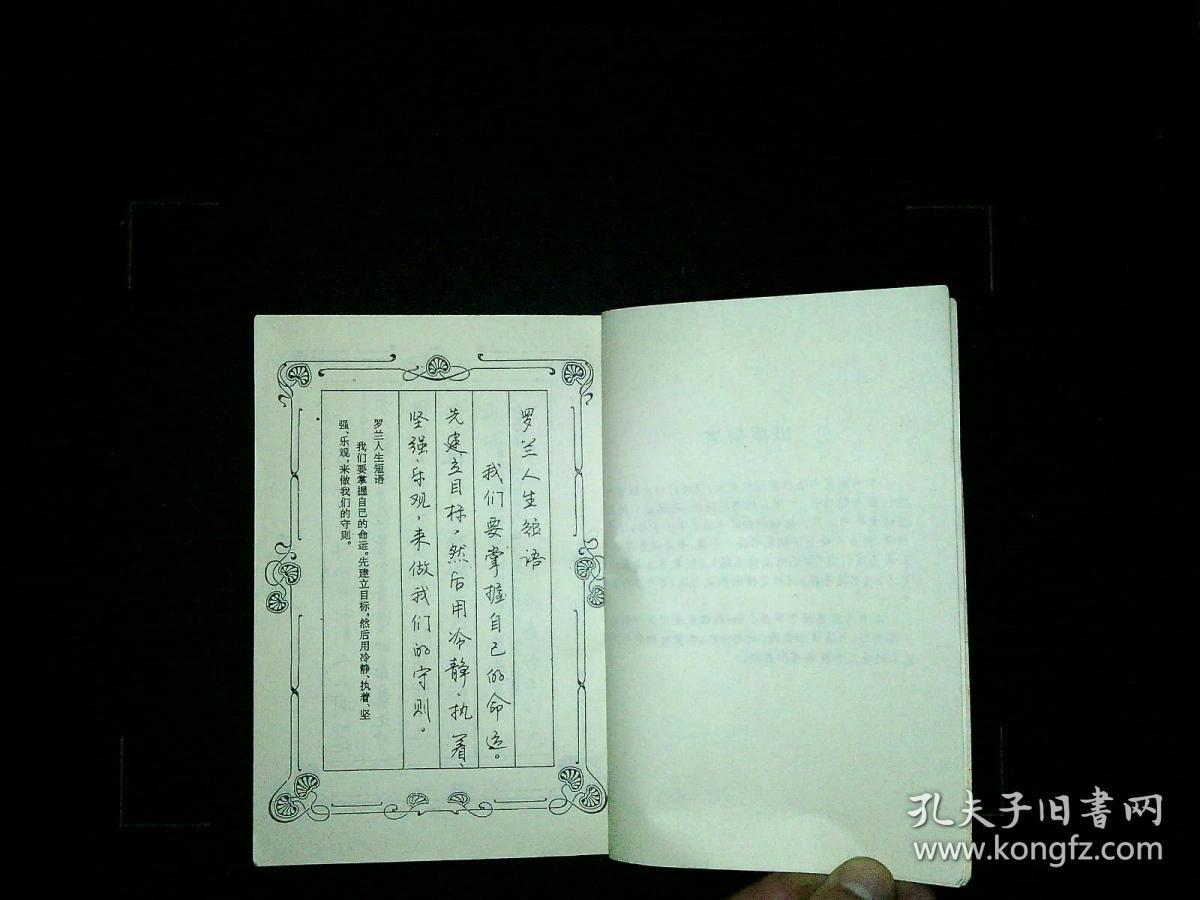 罗兰人生短语
我们要掌握自己的命运。
先建立目标，然后用冷静、执着、
坚强、乐观，来做我们的守则。
罗兰人生短语
我们要掌握自己的命运。先建立目标，然后用冷静、执着、坚
强、乐观，来做我们的守则。
孔夫子旧書网
www.kongfz.com